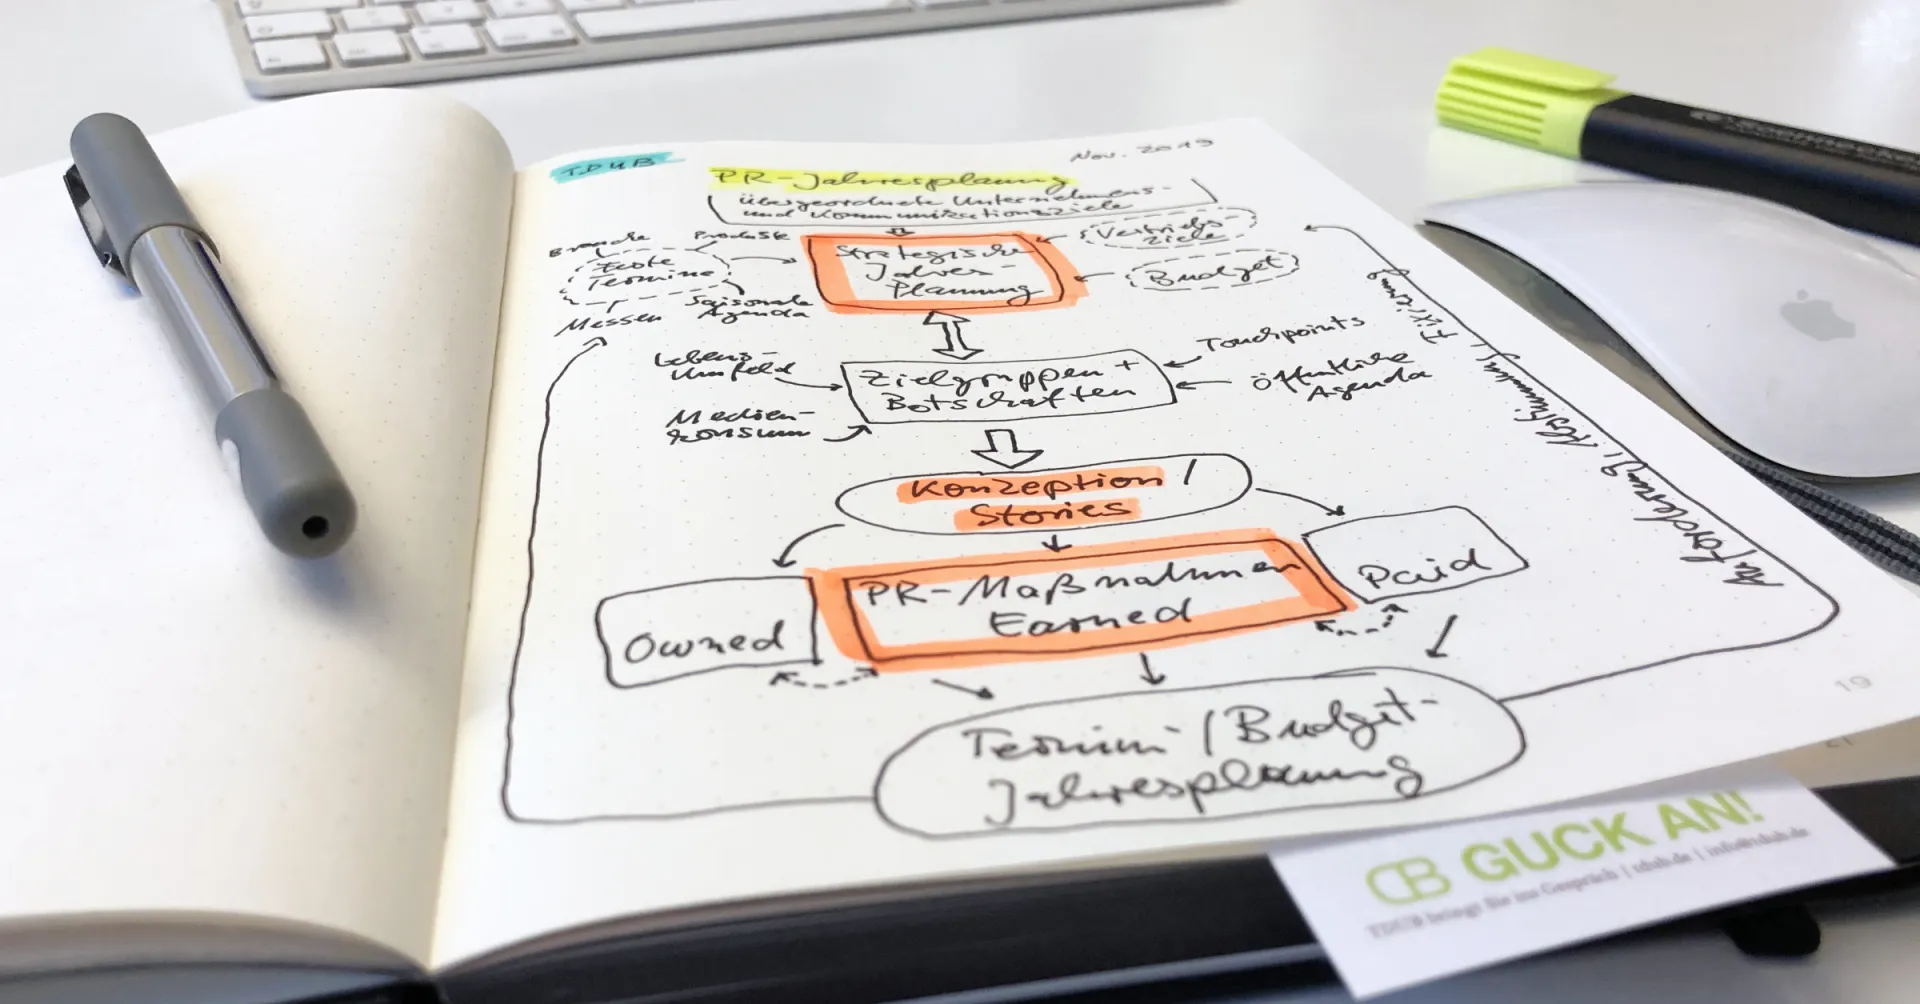 TDUB
Nov. 2019
PR-Jahresplanung
übergeordnete Unternehmens-
und Kommunikationsziele
Branche
Produkte
Feste
Termine
Messen
Saisonale
Agenda
Strategische
Jahres-
Planung
Vertriebs-
ziele
Budget
Lebens-
umfeld
Medien-
konsum
Zielgruppen +
Botschaften
Touchpoints
öffentliche
Agenda
Konzeption /
Stories
Owned
PR-Maßnahmen
Earned
Paid
Termin- / Budget-
Jahresplanung
Anforderung, Abstimmung, Fixierung
19
21
GUCK AN!
TDUB bringt Sie ins Gespräch | tdub.de | info@tdub.de